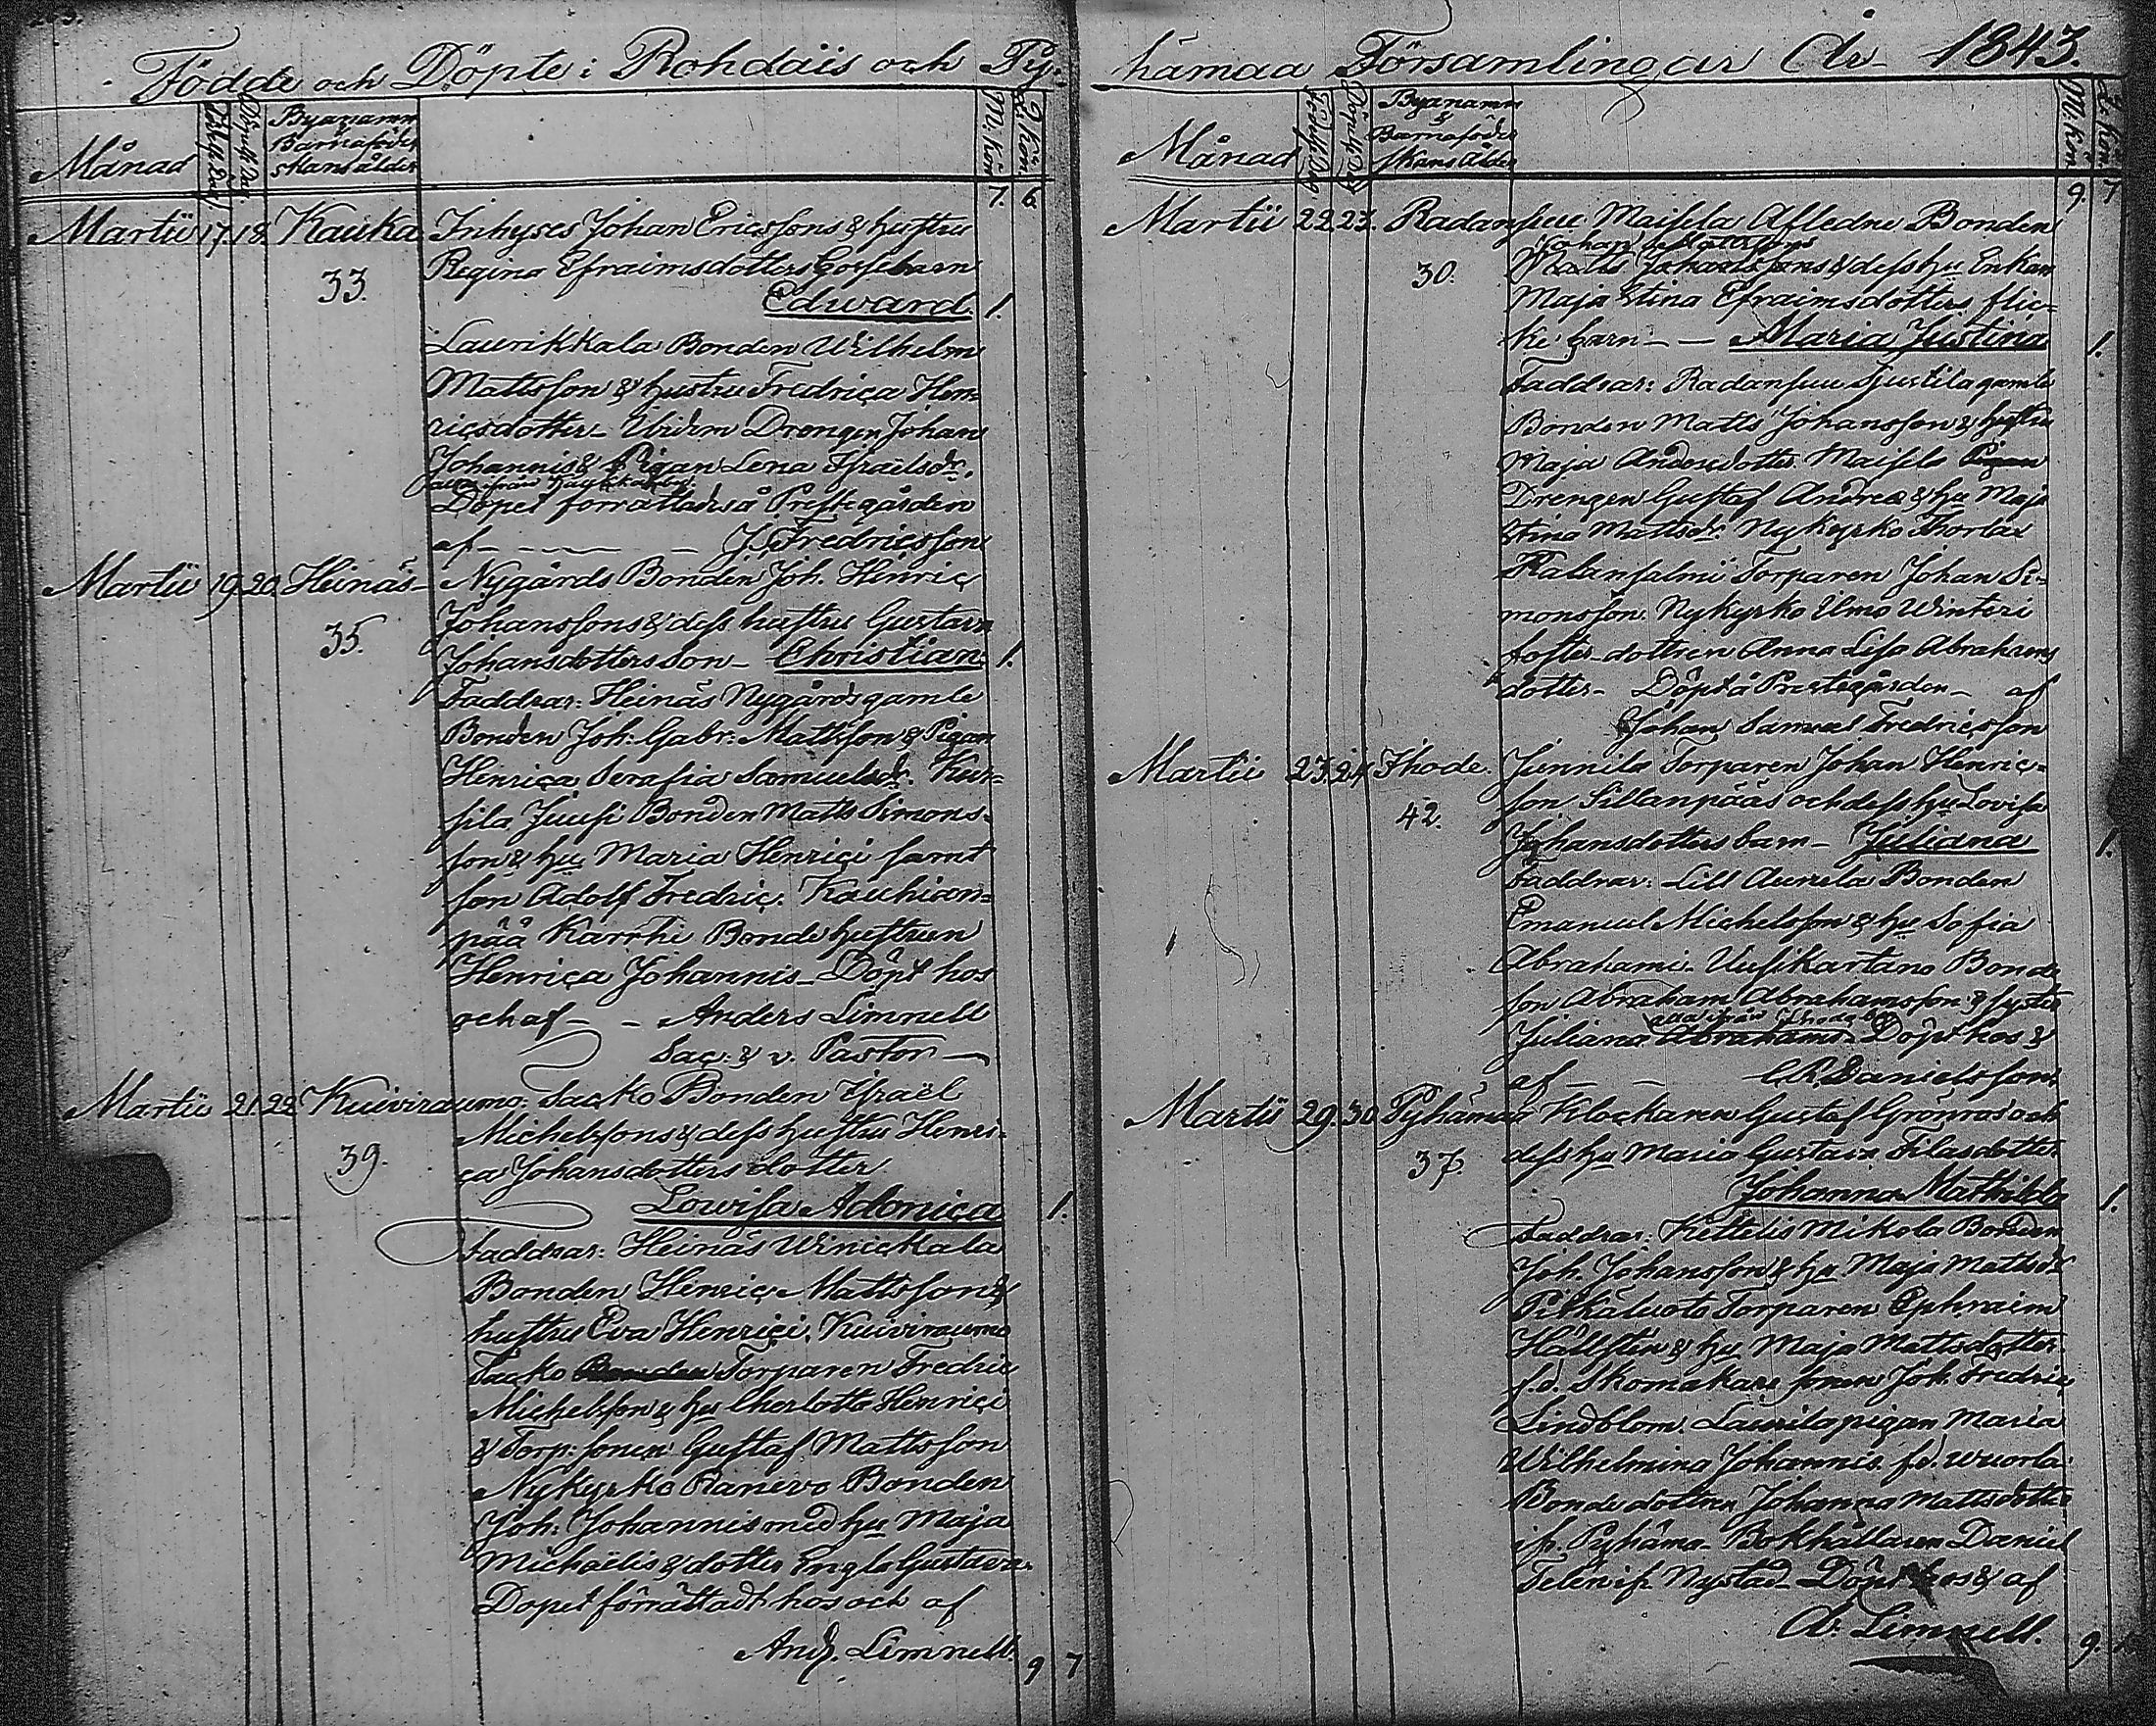 Födde och Döpte i Rohdais och Py-
Månad
Födelse Dag
Döpelse Dag
Byanamn
Barnaföder
skans ålder
M: kön
Q: kön
7. 6.
Martii 17. 18. Kauka Inhyses Johan Ericssons & hustru
33. Regina Efraimsdotters Gossebarn
Edward. 1.
Laurikkala Bonden Wilhelm
Mattsson & hustru Fredrica Hen-
ricsdotter- Ibidem Drengen Johan
Johannis & Pigan Lena Israelsdr.
Döpet förrättades å Prestegården
af - - - - J. S. Fredricsson
Martii 19. 20. Heinäs- Nygårds Bonden Joh. Henric
35. Johanssons & dess hustru Gustava
Johansdotters son- Christian. 1.
Faddrar: Heinäs Nygårds gamle
Bonden Joh: Gabr: Mattsson & Pigan
Henrica Serafia Samuelsdr. Kur-
sila Juusi Bonden Matts Simons-
son & hu Maria Henrici samt
son Adolf Fredric. Kauhian-
pää Karrhi Bonde hustrun
Henrica Johannis- Döpt hos
och af - - Anders Limnell
Sac: & v. Pastor
Martii 21. 22. Kuiviraumo: Sacko Bonden Israël
39. Michelssons & dess hustru Henri-
ca Johansdotters dotter
Lowisa Adonica 1.
Faddrar: Heinäs Winickala
Bonden Henric Mattsson &
hustru Eva Henrici. Kuiviraumo
Sacko Bonden Torparen Fredric
Michelsson & hu Charlotta Henrici
& Torp: sonen Gustaf Mattsson
Nykyrko Ranevo Bonden
Joh: Johannis med hu Maja
Michaëlis & dotter Engla Gustava.
Dopet förrättadt hos och af
And. Limnell.
9 7
hämaa Församlingar År 1843.
Månad
Födelse Dag
Döpelse Dag
Byanamn
&
Barnaföder
skans Ålder
M: kön
Q: kön
9. 7
Martii 22. 23. Radansuu Maisela Afledne Bonden
Johan Mattssons
30. Matts Johanssons & dess hu Enkan
Maja Stina Efraimsdotters flic-
ke barn- - Maria Justina 1.
Faddrar: Radansuu Sjustila gamle
Bonden Matts Johansson & hustru
Maja Andersdotter Maisela Pigan
Drengen Gustaf Andreæ & hu Maja
Stina Mattsdr. Nykyrko Storla
Ralansalmi Torparen Johan Si-
monsson. Nykyrko Elmo Winteri
foster-dottren Anna Lisa Abrahams
dotter- Döpt å Prestegården- af
Johan Samuel Fredricsson
Martii 23. 24. Ihode. Junnila Torparen Johan Henrics-
42. son Sillanpääs och dess hu Lovisa
Johansdotters barn- Juliana 1.
Faddrar: Lill Aunela Bonden
Emanuel Michelsson & hu Sofia
Abrahami- Uusikartano Bonde
son Abraham Abrahamsson & syster
Juliana Abrahams- Döpt hos &
af - - C. R. Danielsson
Martii 29. 30. Pyhämaa Klockaren Gustaf Grönroos och
37 dess hu Maria Gustava Silasdotter
Johanna Mathilda 1.
Faddrar: Kettelis Mikola Bonden
Joh. Johansson & hu Maja Mattsdr
Pitkäluoto Torparen Ephraim
Hällsten & hu Maja Mattsdotter.
f.d. Skomakare sonen Joh. Fredric
Lindblom. Laurila pigan Maria
Wilhelmina Johannis f.d. Wuorla
Bonde dottren Johanna Mattsdotter
ifr. Pyhäma- Bokhållaren Daniel
Telen ifr. Nystad- Döpt hos & af
A. Limnell.
9.